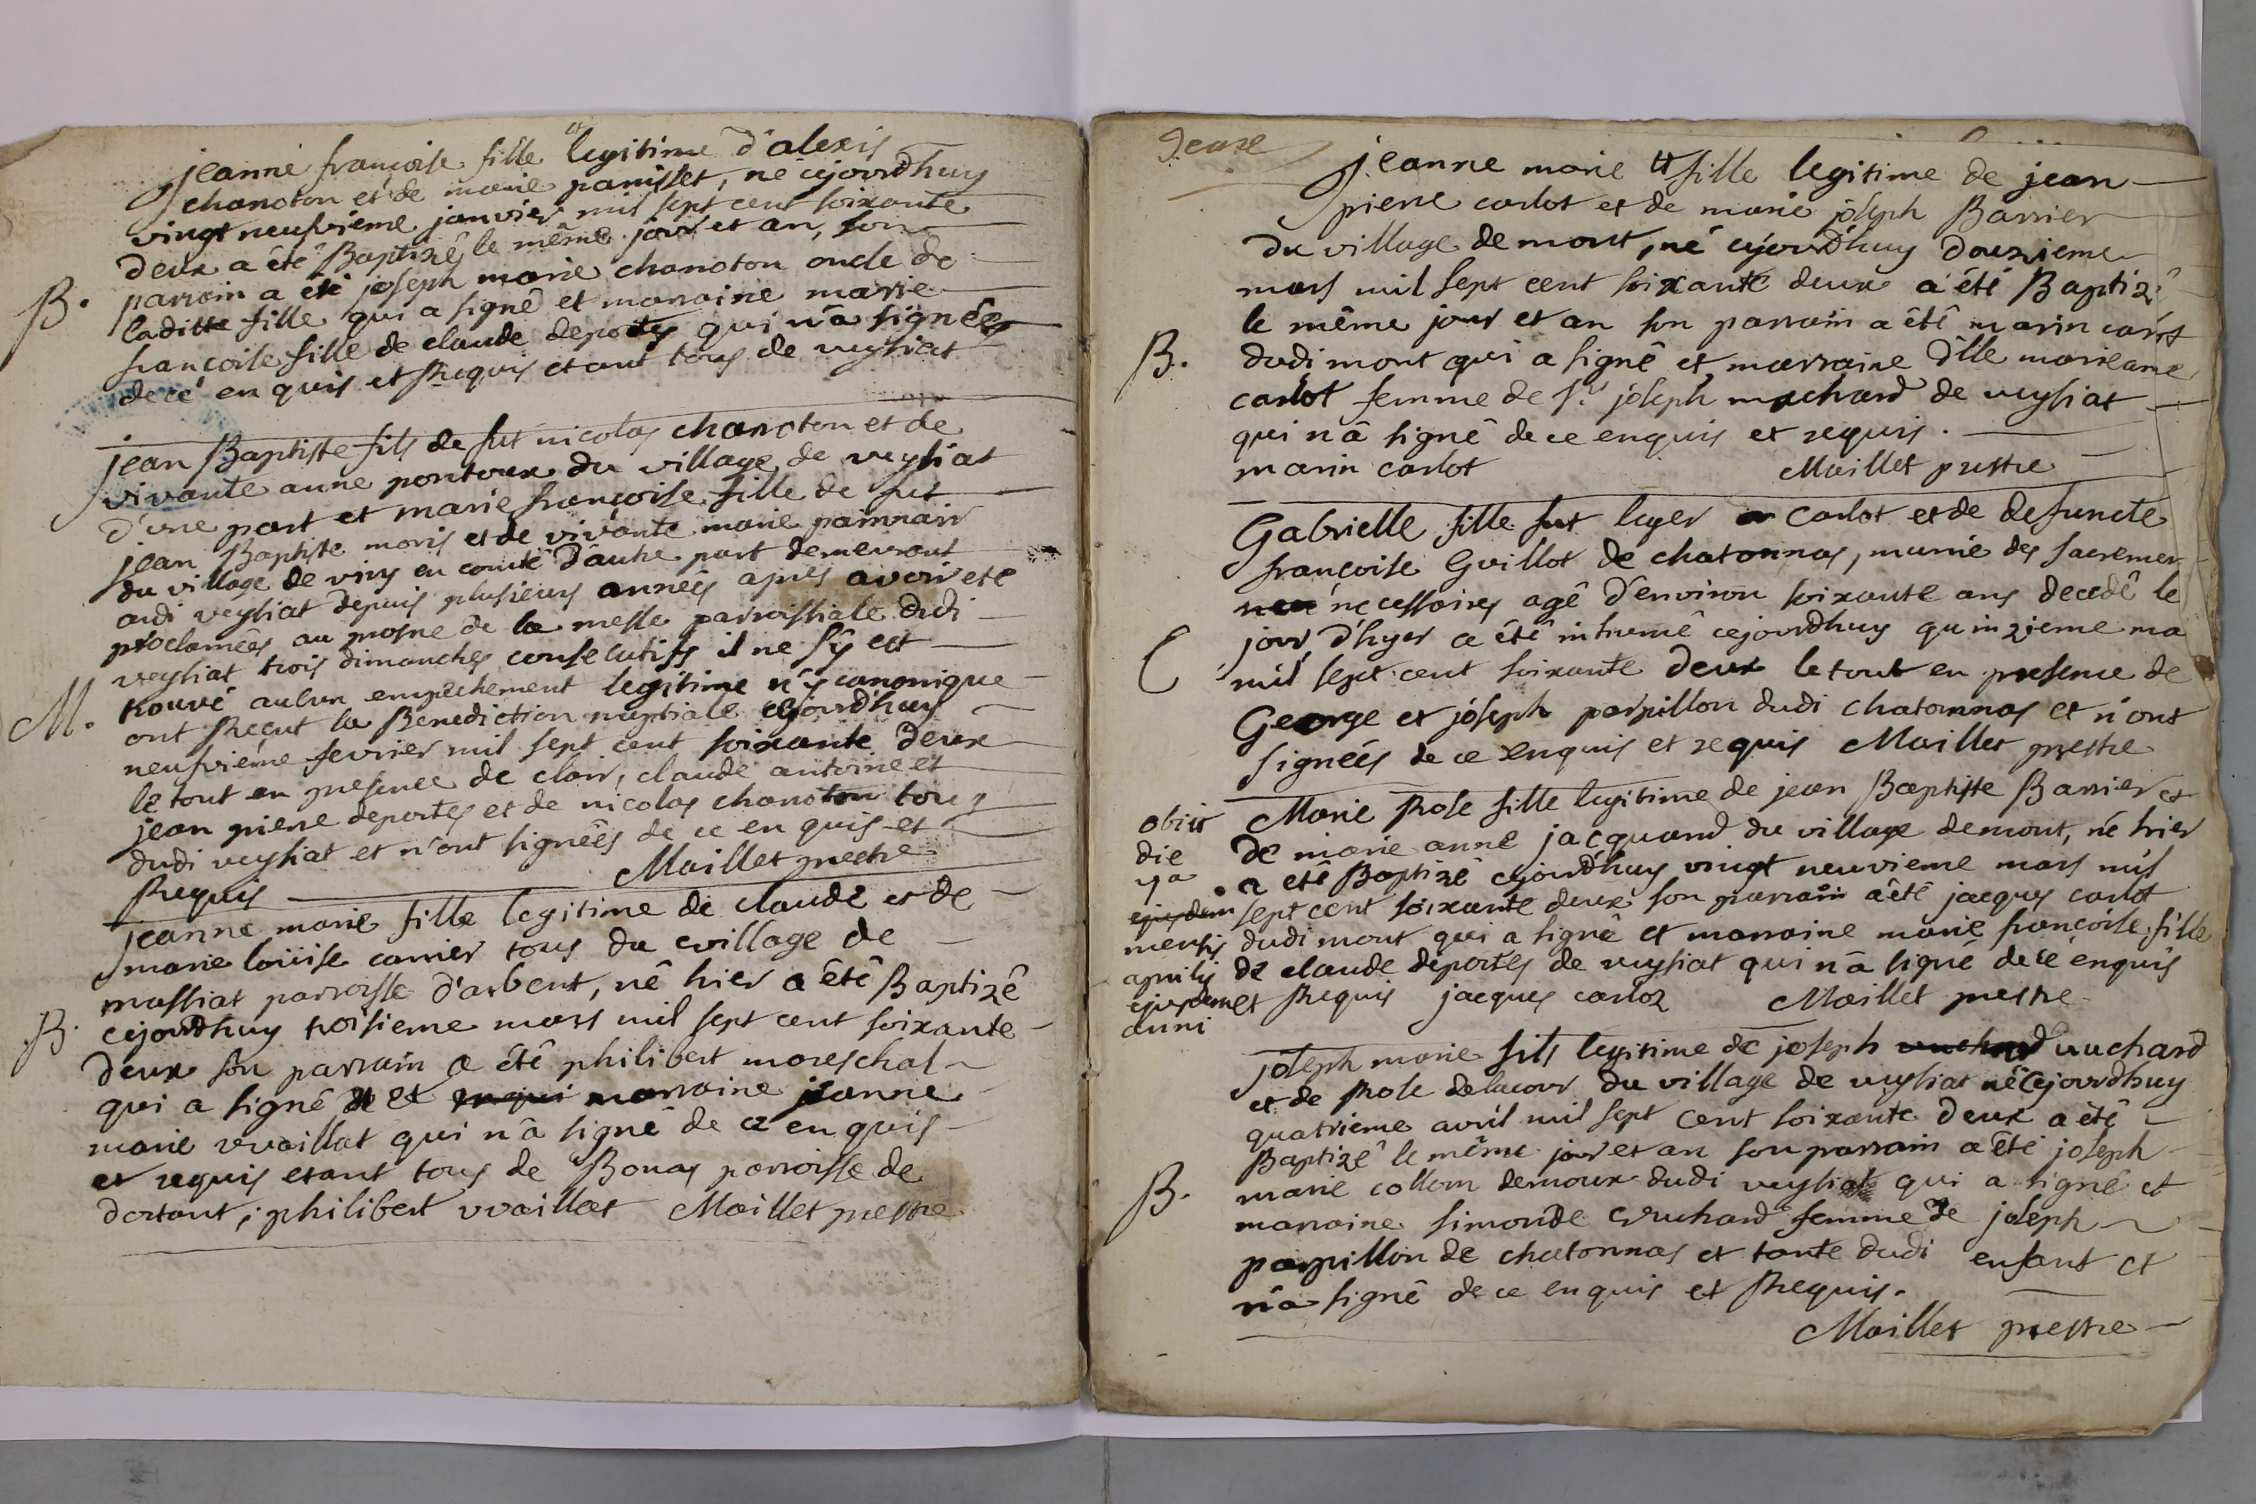 jeanne françoise fille legitime d'alexis
chanoton et de marie panisset, né cejourd'huy
vingt neufvieme janvier mil sept cent soixante
deux a été Baptizé le même jour et an, son
parrain a été joseph marie chanoton oncle de
B.
laditte fille qui a signé et marraine marie
françoise fille de claude deportes qui n'a signées
de ce en quis et Requis etant tous de veyssiat
jean Baptiste fils de fut nicolas chanoton et de
vivante anne pontoux du village de veyssiat
d'une part et marie françoise fille de fut
jean Baptiste moris et de vivante marie
du village de viry en comté d'autre part demeurant
audi veyssiat depuis plusieurs années apres avoir eté
proclamées au prosne de la messe parroissiale dudi
veyssiat trois dimanches consecutifs il ne s'y est
M.
trouvé aucun empechement legitime n'y canonique
ont Reçut la Benediction nuptiale cejourd'huy
neufvieme fevrier mil sept cent soixante deux
le tout en presence de clair, claude antoine et
jean pierre deportes et de nicolas chanoton tous
dudi veyssiat et n'ont signéés de ce en quis et
Requis Maillet prestre
jeanne marie fille legitime de claude et de
marie loüise carrier tous du village de
massiat parroisse d'arbent, né hier a été Baptizé
B.
cejourdhuy troisieme mars mil sept cent soixante
deux son parrain a été philibert mareschal
qui a signé et marraine jeanne
marie vvaillat qui n'a signé de ce en quis
et requis etant tous de Bouas parroisse de
dortant, philibert vvaillat Maillet prestre
deuxe
jeanne marie fille legitime de jean
pierre carlot et de marie joseph Barrier
du village de mont, né cejourd'huy douzieme
mars mil sept cent soixante deux a été Baptizé
le même jour et an son parrain a été marin carlot
B.
dudi mont qui a signé et marraine d'lle marie ane
carlot femme de Sr joseph muchard de veyssiat
qui n'a signé de ce enquis et requis.
marin carlot Maillet prestre
Gabrielle fille fut leger carlot et de defuncte
françoise Guillot de chatonnas, munie des sacremen
necessaires agé d'environ soixante ans decedé le
C
jour d'hyer a été inhumé cejourdhuy quinzieme ma
mil sept cent soixante deux le tout en presence de
George et joseph parpillon dudi chatonnas et n'ont
signéés de ce enquis et requis Maillet prestre
Marie Rose fille legitime de jean Baptiste Barrier et
de marie anne jacquand du village demont, né hier
a eté Baptizé cejourdhuy vingt neuvieme mars mil
sept cent soixante deux son parrain a été jacques carlot
dudi mont qui a signé et marraine marie françoise fille
de claude deportes de veyssiat qui n'a signé de ce enquis
et Requis jacques carlot Maillet prestre
obiit
die
ya
ejusdem
mensis
aprilis
ejusdem
anni
joseph marie fils legitime de joseph vuchard
et de Rose delacour du village de veyssiat né cejourdhuy
quatrieme avril mil sept cent soixante deux a été
Baptizé le même jour et an son parrain a été joseph
B.
marie collom demoux dudi veyssiat qui a signé et
marraine simonde vuchard femme de joseph
parpillon de chatonnas et tante dudi enfant et
n'a signé de ce en quis et Requis.
Maillet prestre